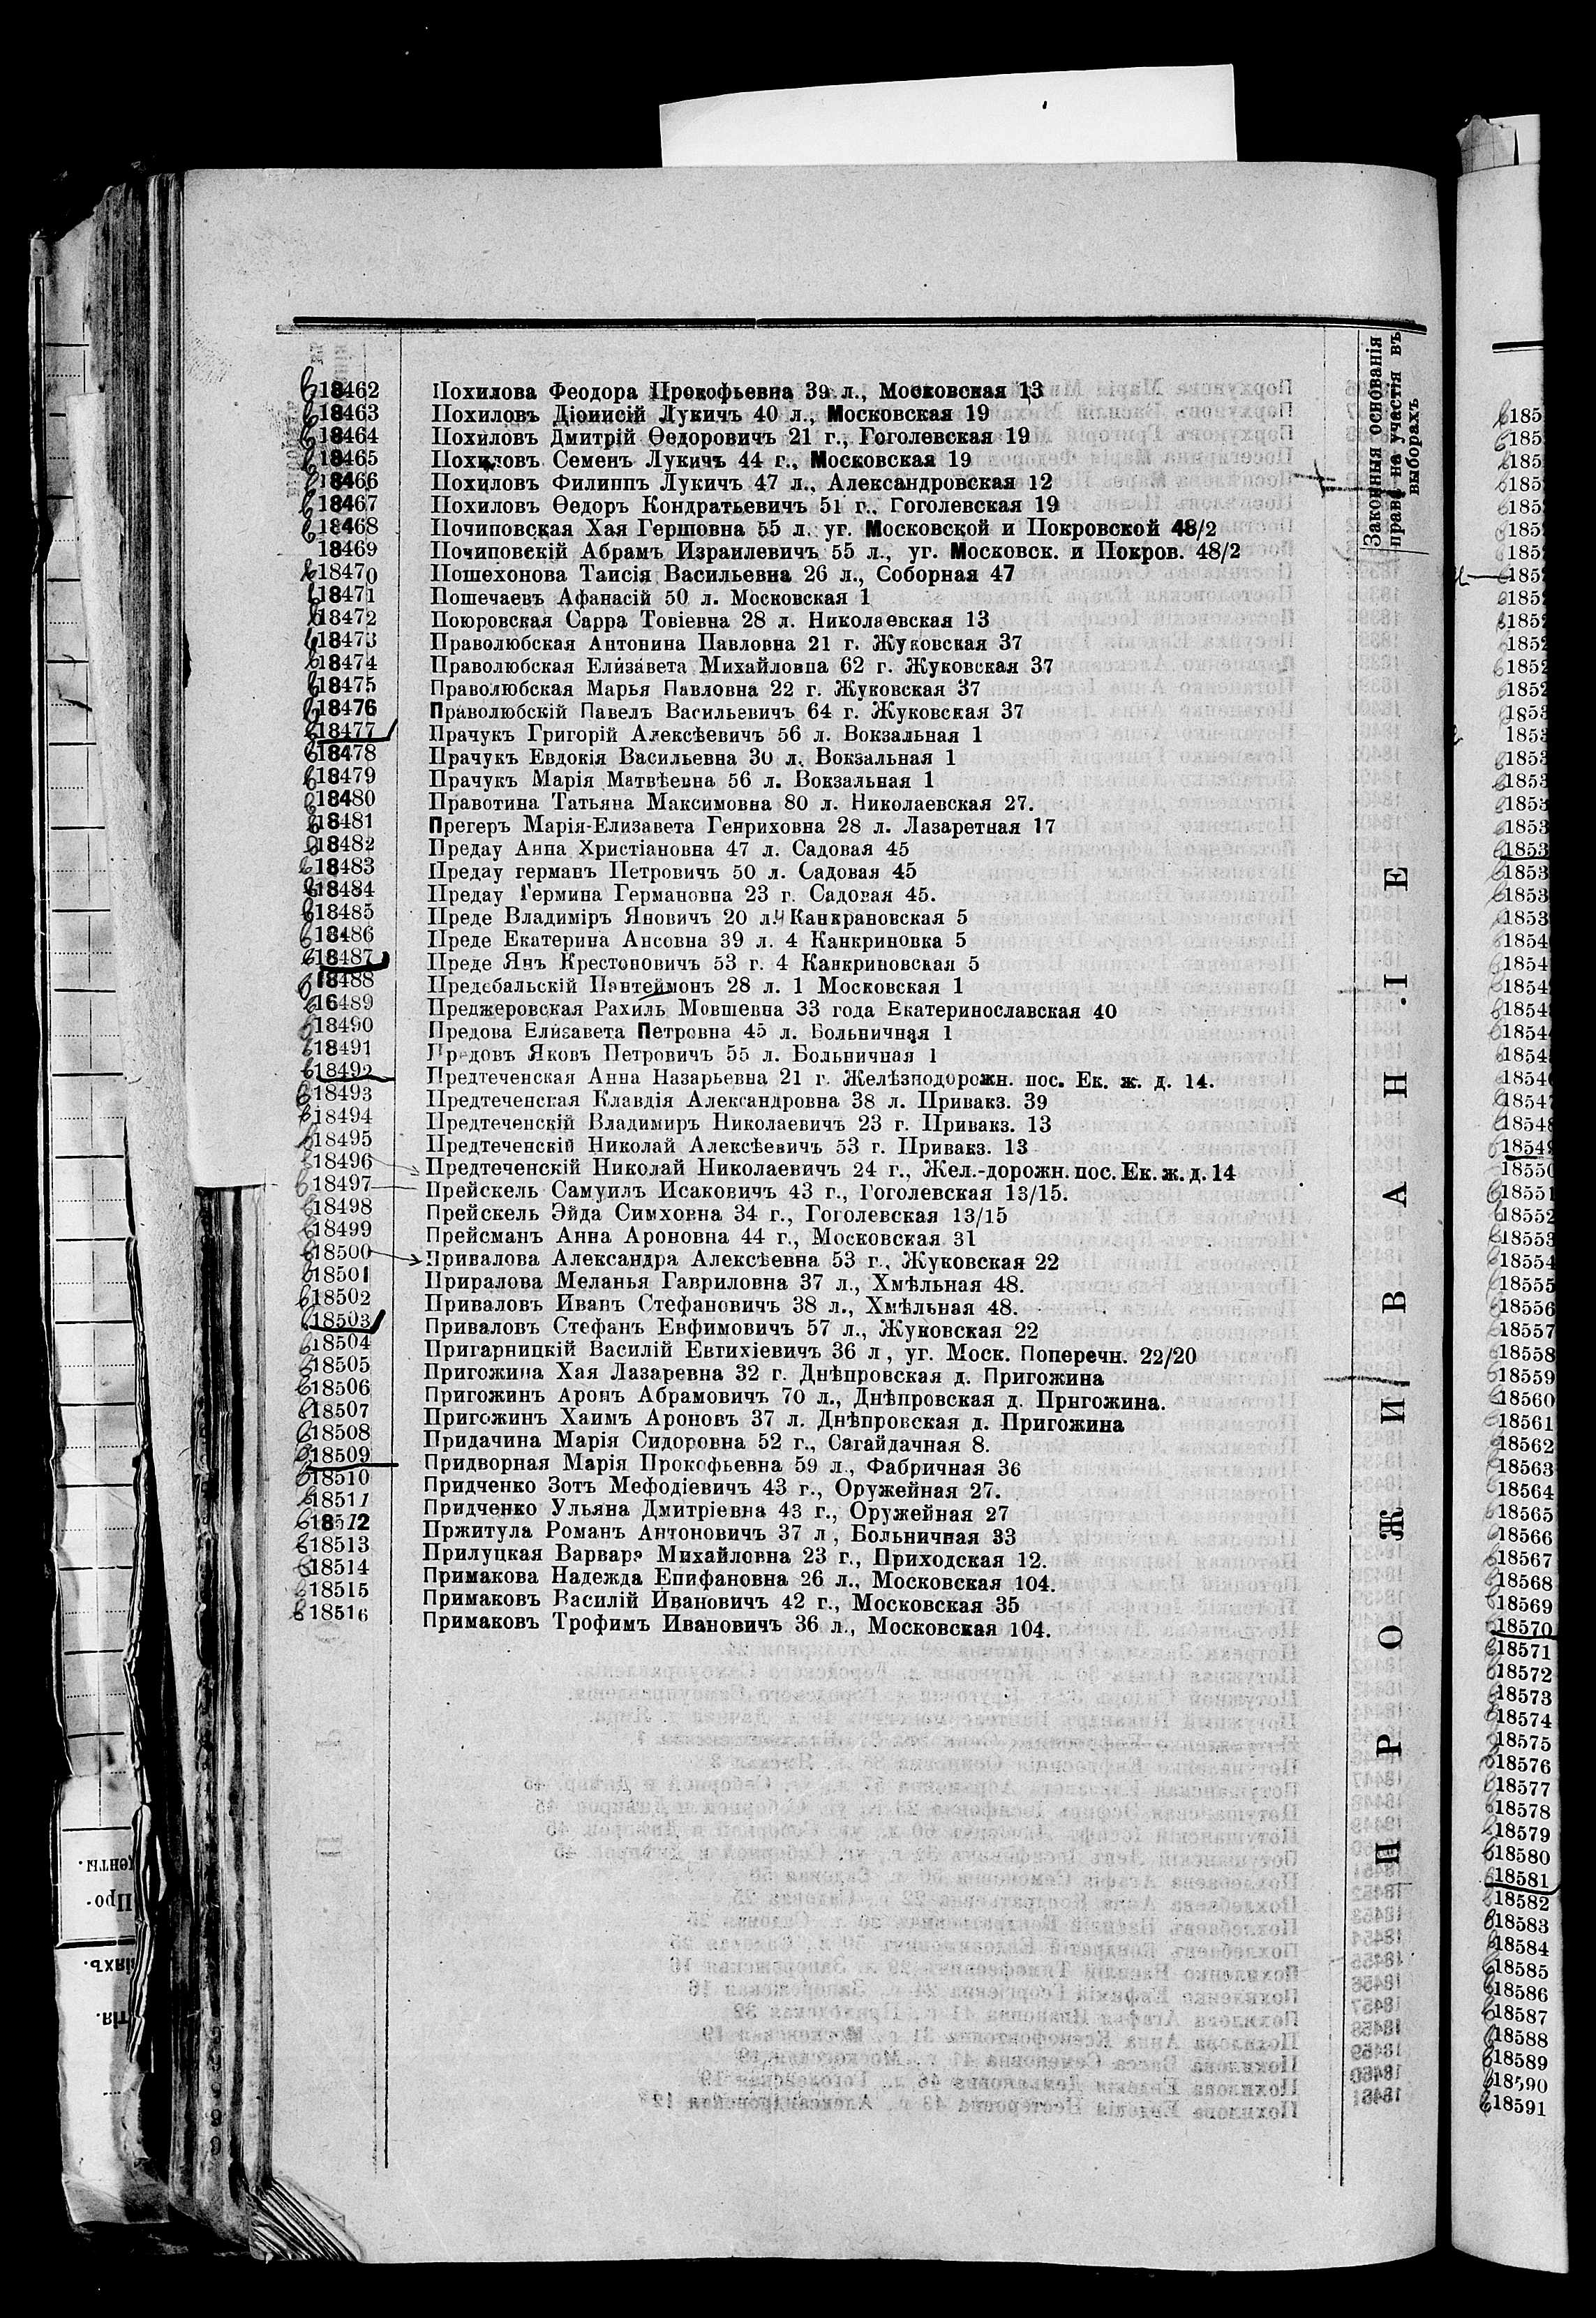 Законныя основанія права на участія въ выборахъ
ПРОЖИВАНІЕ
18462 Похилова Феодора Прокофьевна 39 л., Московская 13
18463 Похиловъ Діонисій Лукичъ 40 л., Московская 19
18464 Похиловъ Дмитрій Ѳедоровичъ 21 г., Гоголевская 19
18465 Похиловъ Семенъ Лукичъ 44 г., Московская 19
18466 Похиловъ Филиппъ Лукичъ 47 л., Александровская 12
18467 Похиловъ Ѳедоръ Кондратьевичъ 51 г., Гоголевская 19
18468 Почиповская Хая Гершовна 55 л. уг. Московской и Покровской 48/2
18469 Почиповскій Абрамъ Израилевичъ 55 л., уг. Московск. и Покров. 48/2
18470 Пошехонова Таисія Васильевна 26 л., Соборная 47
18471 Пошечаевъ Афанасій 50 л. Московская 1
18472 Поюровская Сарра Товіевна 28 л. Николаевская 13
18473 Праволюбская Антонина Павловна 21 г. Жуковская 37
18474 Праволюбская Елизавета Михайловна 62 г. Жуковская 37
18475 Праволюбская Марья Павловна 22 г. Жуковская 37
18476 Праволюбскій Павелъ Васильевичъ 64 г. Жуковская 37
18477 Прачукъ Григорій Алексѣевичъ 56 л. Вокзальная 1
18478 Прачукъ Евдокія Васильевна 30 л. Вокзальная 1
18479 Прачукъ Марія Матвѣевна 56 л. Вокзальная 1
18480 Правотина Татьяна Максимовна 80 л. Николаевская 27.
18481 Прегеръ Марія-Елизавета Генриховна 28 л. Лазаретная 17
18482 Предау Анна Христіановна 47 л. Садовая 45
18483 Предау германъ Петровичъ 50 л. Садовая 45
18484 Предау Гермина Германовна 23 г. Садовая 45.
18485 Преде Владиміръ Яновичъ 20 л. 4 Канкрановская 5
18486 Преде Екатерина Ансовна 39 л. 4 Канкриновка 5
18487 Преде Янъ Крестоновичъ 53 г. 4 Канкриновская 5
18488 Предебальскій Пантеймонъ 28 л. 1 Московская 1
16489 Преджеровская Рахиль Мовшевна 33 года Екатеринославская 40
18490 Предова Елизавета Петровна 45 л. Больничная 1
18491 Предовъ Яковъ Петровичъ 55 л. Больничная 1
18492 Предтеченская Анна Назарьевна 21 г. Желѣзнодорожн. пос. Ек. ж. д. 14.
18493 Предтеченская Клавдія Александровна 38 л. Привакз. 39
18494 Предтеченскій Владимиръ Николаевичъ 23 г. Привакз. 13
18495 Предтеченскій Николай Алексѣевичъ 53 г. Привакз. 13
18496 Предтеченскій Николай Николаевичъ 24 г., Жел.-дорожн. пос. Ек. ж. д. 14
18497 Прейскель Самуилъ Исаковичъ 43 г., Гоголевская 13/15.
18498 Прейскель Эйда Симховна 34 г., Гоголевская 13/15
18499 Прейсманъ Анна Ароновна 44 г., Московская 31
18500 Привалова Александра Алексѣевна 53 г., Жуковская 22
18501 Приралова Меланья Гавриловна 37 л., Хмѣльная 48.
18502 Приваловъ Иванъ Стефановичъ 38 л., Хмѣльная 48.
18503 Приваловъ Стефанъ Евфимовичъ 57 л., Жуковская 22
18504 Пригарницкій Василій Евтихіевичъ 36 л, уг. Моск. Поперечн. 22/20
18505 Пригожина Хая Лазаревна 32 г. Днѣпровская д. Пригожина
18506 Пригожинъ Аронъ Абрамовичъ 70 л., Днѣпровская д. Пригожина.
18507 Пригожинъ Хаимъ Ароновъ 37 л. Днѣпровская д. Пригожина
18508 Придачина Марія Сидоровна 52 г., Сагайдачная 8.
18509 Придворная Марія Прокофьевна 59 л., Фабричная 36
18510 Придченко Зотъ Мефодіевичъ 43 г., Оружейная 27.
18511 Придченко Ульяна Дмитріевна 43 г., Оружейная 27
18512 Пржитула Романъ Антоновичъ 37 л, Больничная 33
18513 Прилуцкая Варвара Михайловна 23 г., Приходская 12.
18514 Примакова Надежда Епифановна 26 л., Московская 104.
18515 Примаковъ Василій Ивановичъ 42 г., Московская 35
18516 Примаковъ Трофимъ Ивановичъ 36 л., Московская 104.
18550
18551
18552
18553
18554
18555
18556
18557
18558
18559
18560
18561
18562
18563
18564
18565
18566
18567
18568
18569
18570
18571
18572
18573
18574
18575
18576
18577
18578
18579
18580
18581
18582
18583
18584
18585
18586
18587
18588
18589
18590
18591